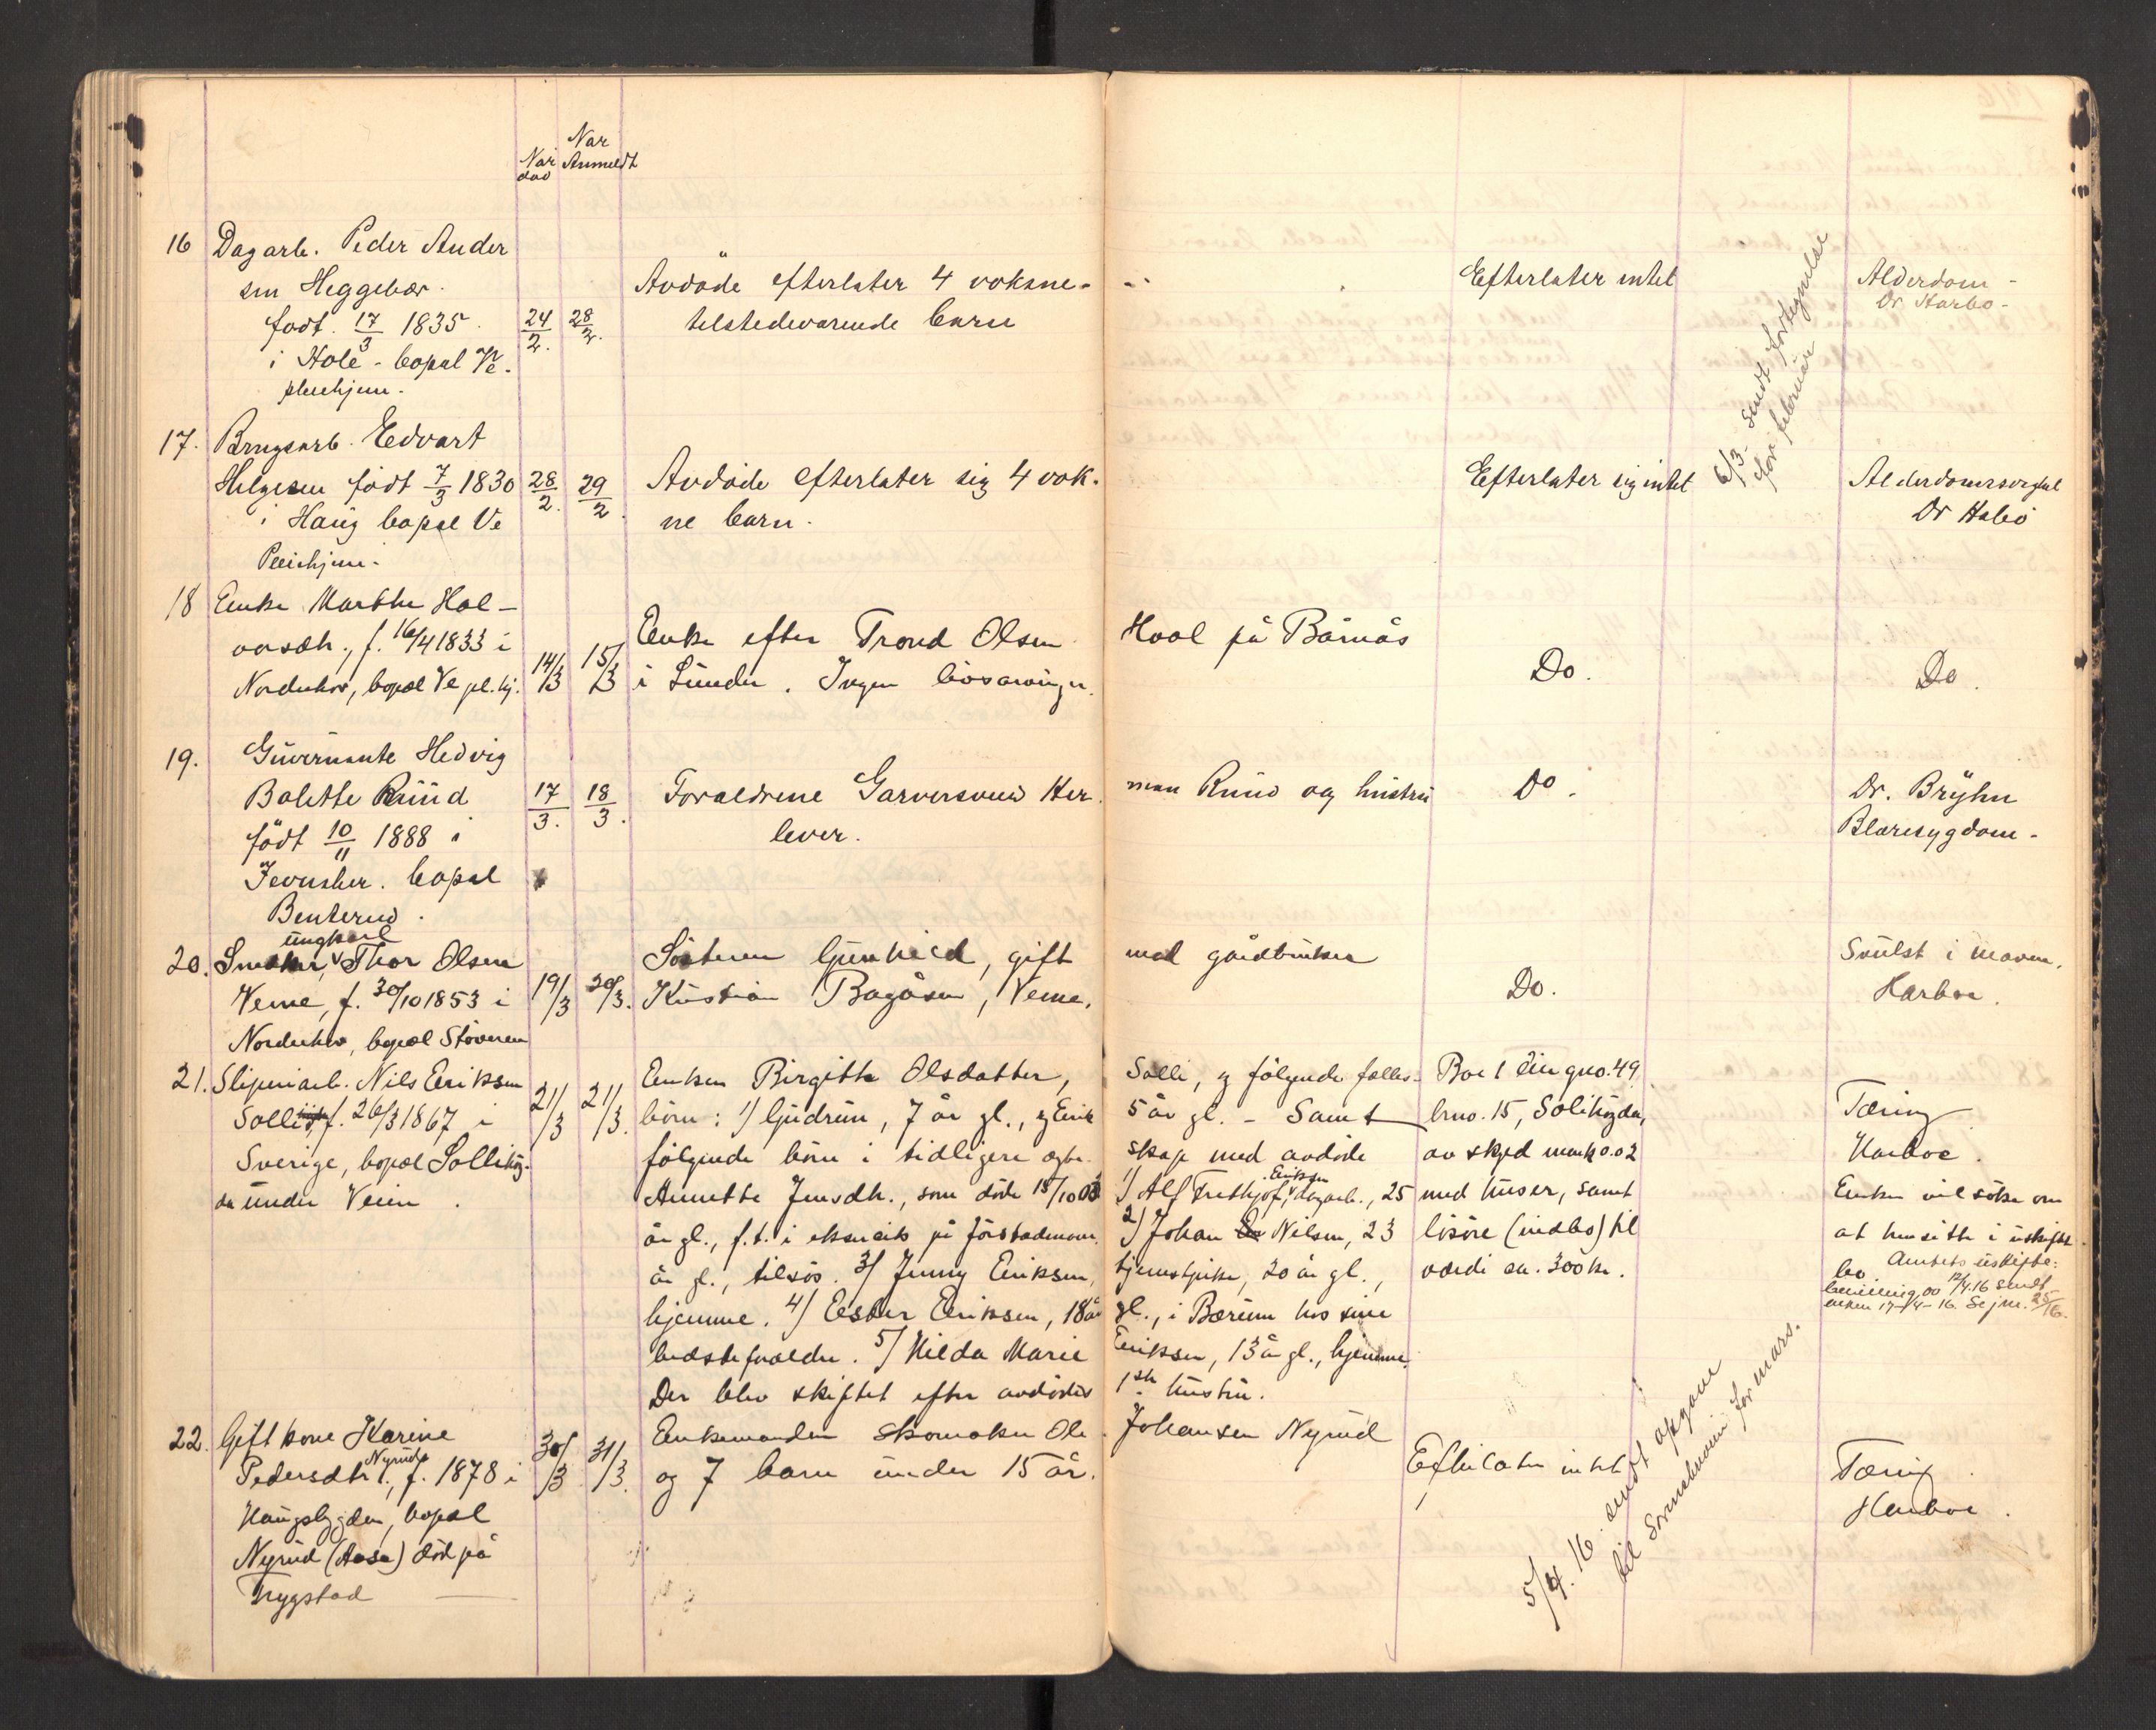 Nar Nar
død Anmeldt
16 Dagarb. Peder Ander
sen Heggebær.
født. 17/3 1835. 24/2. 28/2. Avdøde efterlater 4 voksne - Efterlater intet Alderdom -
i Hole - bopæl Ve. tilstedeværende barn Dr. Harbo -
pleiehjem.
6/3 - Sendt fortegnelse
for februar
17. Brugsarb. Edvart
Helgesen født 7/3 1830 28/2. 29/2 Avdøde efterlater sig 4 vok- Efterlater sig intet Alderdomssvghet
i Haug bopæl Ve ne barn. Dr Habo
Pleiehjem.
18 Enke Marthe Hal-
vorsdh., f. 16/4 1833 i 14/3 15/3 Enke efter Trond Olsen Hval på Bårnås
Norderhov, bopæl Ve pl. hj. i Lunder. Ingen livsarvinger. Do. Do.
19. Guvernante Hedvig
Bolette Ruud 17/3. 18/3. Forældrene Garversvend Her- man Ruud og hustru Do. Dr. Brÿhn
født 10/11 1888 i lever. Blæresygdom -
Jevnaker. bopæl
Benterud.
20. ungkarl Thor Olsen Søsteren Gunhild, gift med gårdbruker Svulst i maven.
Veme, f. 30/10 1853 i 19/3 20/3. Kristian Bagåsen, Veme. Do. Harboe.
Norderhov, bopæl Støveren
21. Sliperiarb. Nils Eriksen 21/3 21/3. Enken Birgitte Olsdatter, Solli, og følgende fælles- Boet eier gno. 49
Solli, f. 26/3 1867 i børn: 1) Gudrun, 7 år gl., og Erik 5 år gl. - Samt brno. 15, Solihøgda, Tæring
Sverige, bopæl Sollihøg- følgende børn i tidligere egte- skap med avdøde av skyld mark 0.02 Harboe.
da under Veien. Annette Jensdh., som døde 15/10 03 1) Alf Frithjof Eriksen, dagarb., 25 med huser, samt Enken vil søke om
år gl., f.t. i eksersis på Jørstadmoen. 2) Johan Nilsen, 23 løsøre (indbo) til at hensitte i uskiftet
år gl., tilsjøs. 3) Jenny Eriksen, tjenestpike, 20 år gl., værdi ca. 300 kr. bo. Amtets uskifte-
hjemme. 4) Ester Eriksen, 18 år gl., i Bærum hos sine bevilling av 12/4. 16 sendt
enken 17-4-16. Se jnr. 25/16.
bedsteforældre. 5) Hilda Marie Eriksen, 13 år gl., hjemme.
Der blev skiftet efter avdødes 1ste hustru.
22. Gift kone Karine 30/3 31/3. Enkemanden skomaker Ole Johansen Nyrud
Pedersdtr. Nyrud, f. 1878 i og 7 barn under 15 år. Efterlater intet Tæring
Haugsbygden, bopæl Harboe.
Nyrud (Aasa) død på
Trygstad
5/4. 16. sendt opgave
til Sorenskriveren for mars.